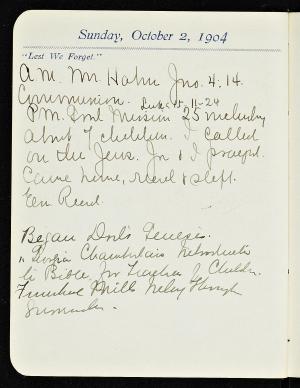 Sunday, October 2, 1904
"Lest We Forget."
A.M. Mr Hahn Jno. 4:14.
Communion. Luke 15, 11-24
P.M. Mission 25 including
about 7 children. I called
on the Jews. Jn & I
Came home, read & slept.
Eve Read.
Began Genesis.
" Georgia Chamberlain's Introduction
to Bible for Teachers of Children.
Finished Mill's through